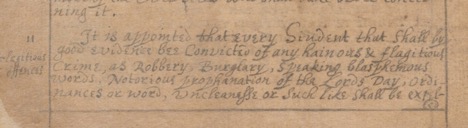 ning it.
11
flagitious
offences
It is appointed that every Student that shall be
good evidence bee Convicted of any hainous & flagitious
Crime, as Robbery, Burglary, Speaking blasphemous
words, Notorious prophanation of the Lords Day, Ordi-
nances or word, Uncleanesse or Such like shall be expel-